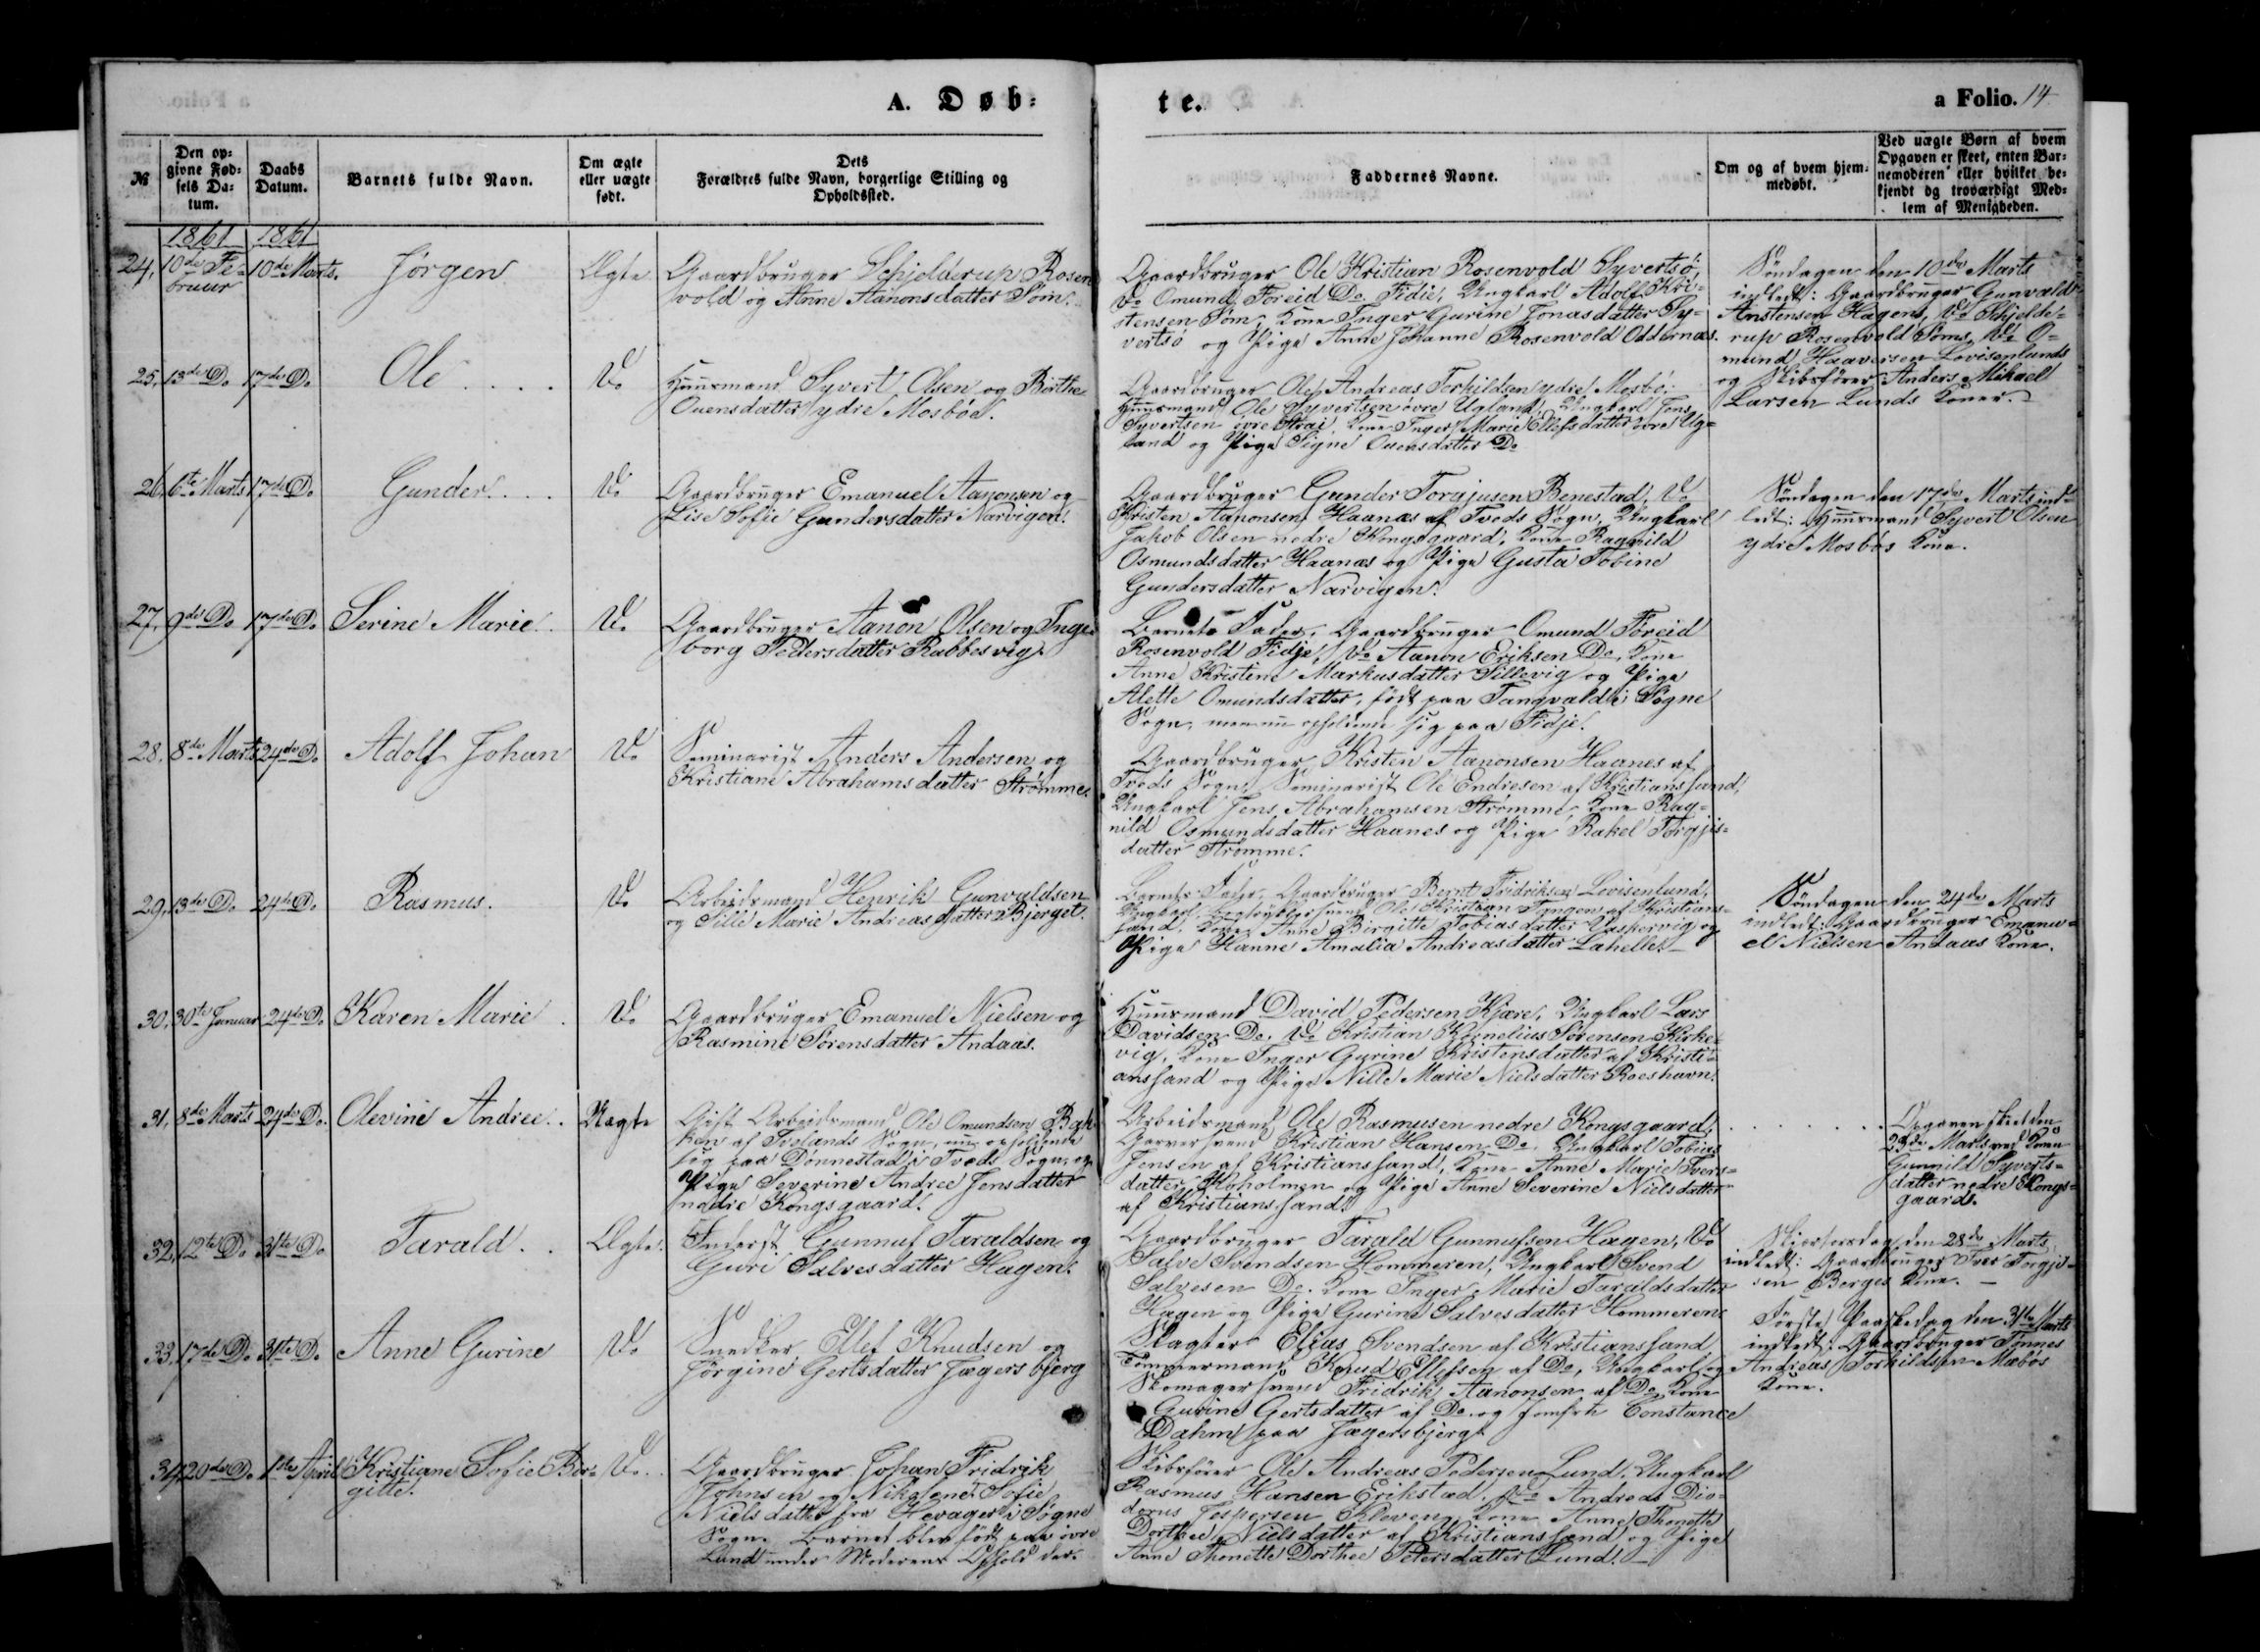 A. Døb-
te.
a Folio. 14
№
Den op-
givne Fød-
sels Da-
tum.
Daabs
Datum.
Barnets fulde Navn.
Om ægte
eller uægte
født.
Dets
Forældres fulde Navn, borgerlige Stilling og
Opholdssted.
Faddernes Navne.
Om og af hvem hjem-
medøbt.
Ved uægte Børn af hvem
Opgaven er skeet, enten Bar-
nemoderen eller hvilket be-
kjendt og troværdigt Med-
lem af Menigheden.
1861 1861
24. 10de Fe-
bruar
10de Marts.
Jørgen
Ægte
Gaardbruger Schjelderup Rosen
vold og Anne Aanonsdatter Søm.
Gaardbruger Ole Kristian Rosenvold Syvertsø,
Do Omund Foreid Do Fidie, Ungkarl Adolf Kri-
stensen Søm, Kone Inger Gurine Jonasdatter Sy-
vertsø og Pige Anne Johanne Rosenvold Oddernæs.
Søndagen den 10de Marts
indledt: Gaardbruger Gunvald
Anstensen Hagens, Do Schjelde-
rup Rosenvold Søms, Do O-
mund Haaversen Lovisenlunds
og Skibsfører Anders Mikael
Larsen Lunds Koner.
25. 13de Do 17de Do
Ole
Do
Huusmand Syvert Olsen og Birthe
Ouensdatter ydre Mosbøe.
Gaardbruger Ole Andreas Torkildsen ydre Mosbø,
Huusmand Ole Syvertsen øvre Ugland, Ungkarl Jens
Syvertsen øvre Strai, Kone Inger Marie Ellefsdatter øvre Ug-
land og Pige Signe Ouensdatter Do
26. 6te Marts 17de Do
Gunder
Do
Gaardbruger Emanuel Aanonsen og
Lise Sofie Gundersdatter Narvigen.
Gaardbruger Gunder Torgjusen Benestad, Do
Kristen Aanonsen Haanæs af Tveds Sogn, Ungkarl
Jakob Olsen nedre Kongsgaard, Kone Ragnild
Osmundsdatter Haanæs og Pige Gusta Tobine
Gundersdatter Narvigen.
Søndagen den 17de Marts ind-
ledt: Huusmand Syvert Olsen
ydre Mosbøs Kone.
27. 9de Do 17de Do
Serine Marie
Do
Gaardbruger Aanon Olsen og Inge-
borg Pedersdatter Rabbesvig.
Barnets Fader, Gaardbruger Omund Foreid
Rosenvold Fidje, Do Aanon Eriksen Do, Kone
Anne Kristine Markusdatter Sillevig og Pige
Alette Omundsdatter, født paa Tangvald i Søgne
Sogn, men nu opholdende sig paa Fidje.
28. 8de Marts 24de Do
Adolf Johan
Do
Seminarist Anders Andersen og
Kristiane Abrahamsdatter Strømme.
Gaardbruger Kristen Aanonsen Haanes af
Tveds Sogn, Seminarist Ole Endresen af Kristianssand,
Ungkarl Jens Abrahamsen Strømme, Kone Rag-
nild Osmundsdatter Haanes og Pige Rakel Torgjis-
datter Strømme.
29. 13de Do 24de Do
Rasmus.
Do
Arbeidsmand Henrik Gunvaldsen
og Sille Marie Andreasdatter Bjerget.
Barnets Fader, Gaardbruger Bernt Fridriksen Lovisenlund,
Ungkarl Ole Kristian Tangen af Kristians-
sand, Kone Anne Birgitte Tobiasdatter og
Pige Hanne Amalia Andreasdatter Lahelle.
Søndagen den 24de Marts
indledt: Gaardbruger Emanu-
el Nielsen Andaas Kone.
30. 30te Januar 24de Do
Karen Marie
Do
Gaardbruger Emanuel Nielsen og
Rasmine Sørensdatter Andaas.
Huusmand David Pedersen Kjære, Ungkarl Lars
Davidsen Do, Do Kristian Kornelius Sørensen Kirke-
vig, Kone Inger Gurine Kristensdatter af Kristi-
anssand og Pige Nille Marie Nielsdatter Roeshavn.
31. 8de Marts 24de Do.
Olevine Andree
Uægte
Gift Arbeidsmand Ole Omundsen Bak-
ken af Tvelands Sogn, nu opholdende
sig paa Dønnestad i Tveds Sogn, og
Pige Severine Andree Jensdatter
nedre Kongsgaard.
Arbeidsmand Ole Rasmusen nedre Kongsgaard,
Garversvend Kristian Hansen Do, Ungkarl Tobias
Jensen af Kristianssand, Kone Anne Marie Ivers-
datter Kuholmen og Pige Anne Severine Nielsdatter
af Kristianssand.
Opgaven skeet den
23de Marts ved Konen
Gunnild Syverts-
datter nedre Kongs-
gaard.
32. 12te Do 31te Do
Tarald
Ægte
Inderst Gunnuf Taraldsen og
Guri Salvesdatter Hagen.
Gaardbruger Tarald Gunnufsen Hagen, Do
Salve Svendsen Hommeren, Ungkarl Svend
Salvesen Do. Kone Inger Marie Taraldsdatter
Hagen og Pige Gurine Salvesdatter Hommeren.
Skjærtorsdag den 28de Marts
indledt: Gaardbruger Iver Torgju-
sen Berges Kone.
33. 17de Do 31te Do
Anne Gurine
Do
Snedker Ellef Knudsen og
Jørgine Gertsdatter Jægersbjerg
Slagter Elias Svendsen af Kristianssand
Tømmermand Knud Ellefsen af Do, Ungkarl og
Skomagersvend Fridrik Aanonsen af Do Kone
Gurine Gertsdatter af Do og Jomfru Constance
Dahm paa Jægersbjerg.
Første Paaskedag den 31te Marts
indledt: Gaardbruger Tønnes
Andreas Torkildsen Mæbøs
Kone.
34. 20de Do 1ste April
Kristiane Sofie Bir-
gitte.
Do
Gaardbruger Johan Fridrik
Johnsen og Nikolene Sofie
Nielsdatter fra Hevager i Søgne
Sogn. Barnet blev født paa øvre
Lund under Moderens Ophold der.
Skibsfører Ole Andreas Pedersen Lund, Ungkarl
Rasmus Hansen Erikstad, Do Andreas Dio-
dorus Jespersen Kleven, Kone Anne Thonette
Dorthee Nielsdatter af Kristianssand og Pige
Anne Thonette Dorthee Petersdatter Lund.